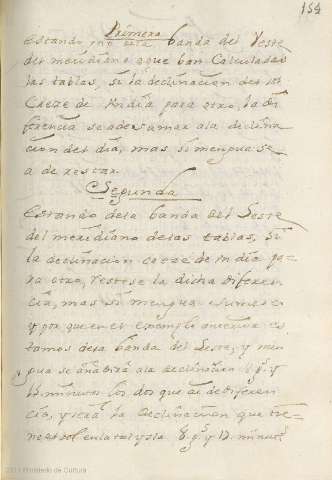 154
Primera
Estando de la banda del Veste
del meridiano a que ban Calculadas
las tablas, si la declinacion del sol
Creze de Un dia para otro, la di
ferencia se a de sumar a la declina
cion del dia, mas si mengua se
a de restar.
Segunda
Estando de la banda del Leste
del meridiano de las tablas, si
la declinacion creze de un dia pa
ra otro, restese la dicha diferen
cia, mas si mengua sumese
y por que en el exemplo es
tamos de la banda del Leste, y men
gua se añadirá a la declinacion 8 gs. y
minutos los dos que ai de diferen
cia, y será la declinacion que tie
ne el sol en la tal ysla 8 gs. y 13 minuts
2011 Ministerio de Cultura